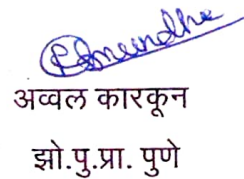 अव्वल कारकून
झो.पु.प्रा. पुणे